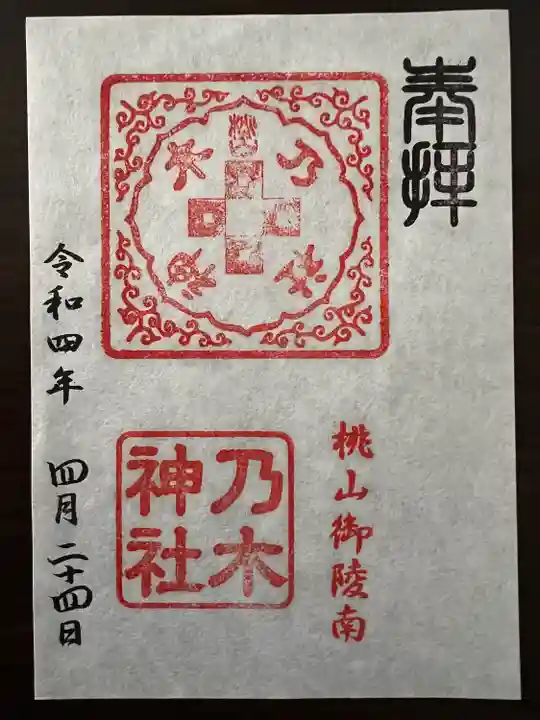 奉拝
桃山御陵南
乃木
神社
令和四年 四月二十四日